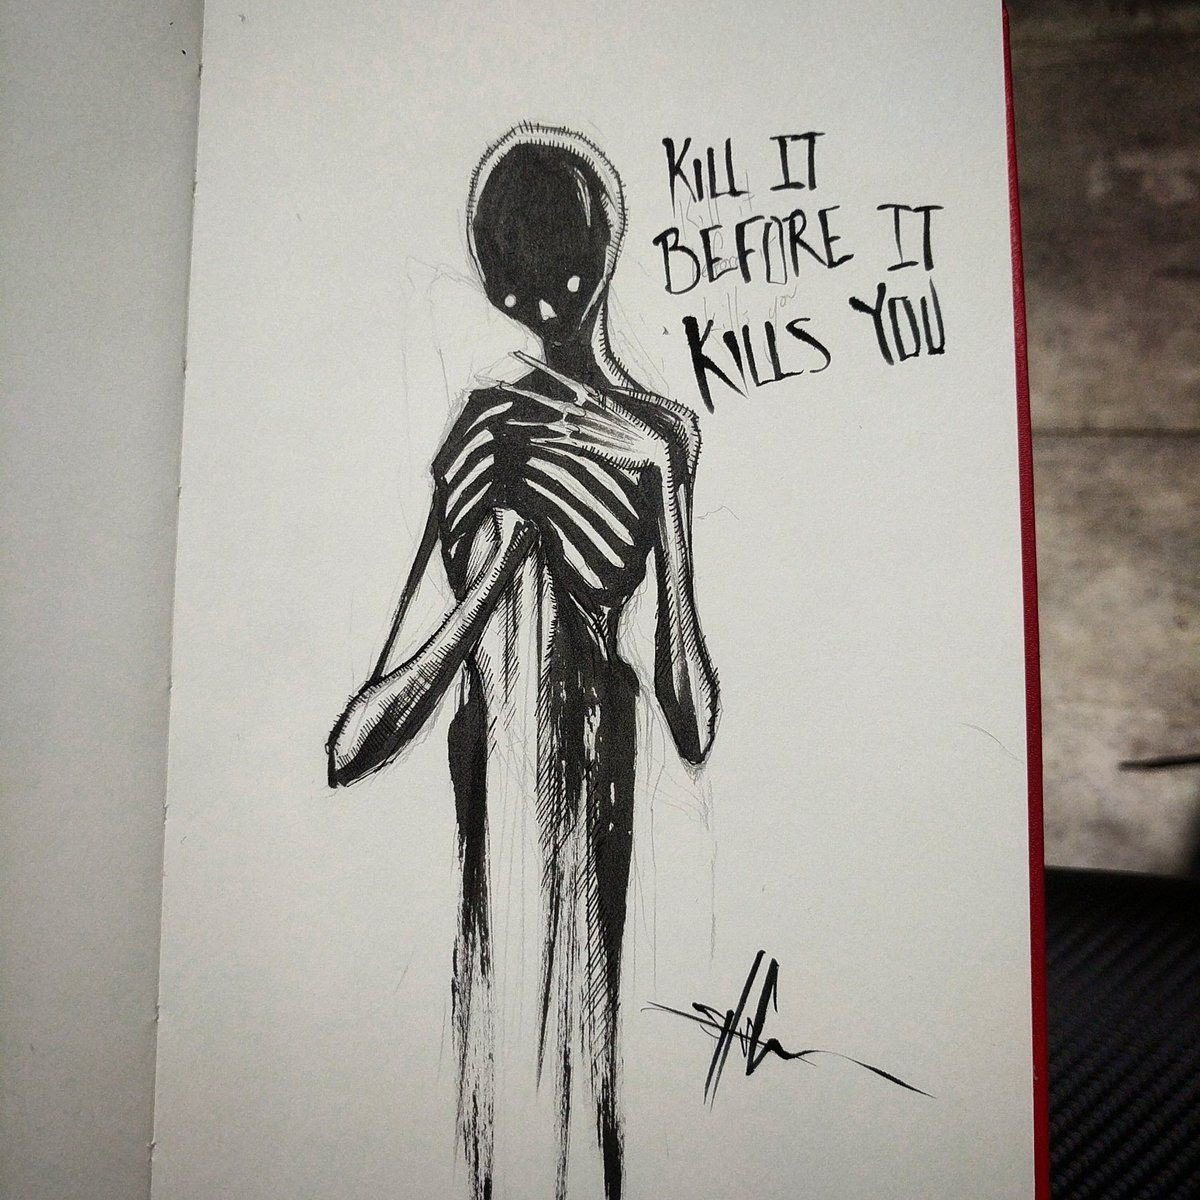 KILL IT
BEFORE IT
KILLS YOU